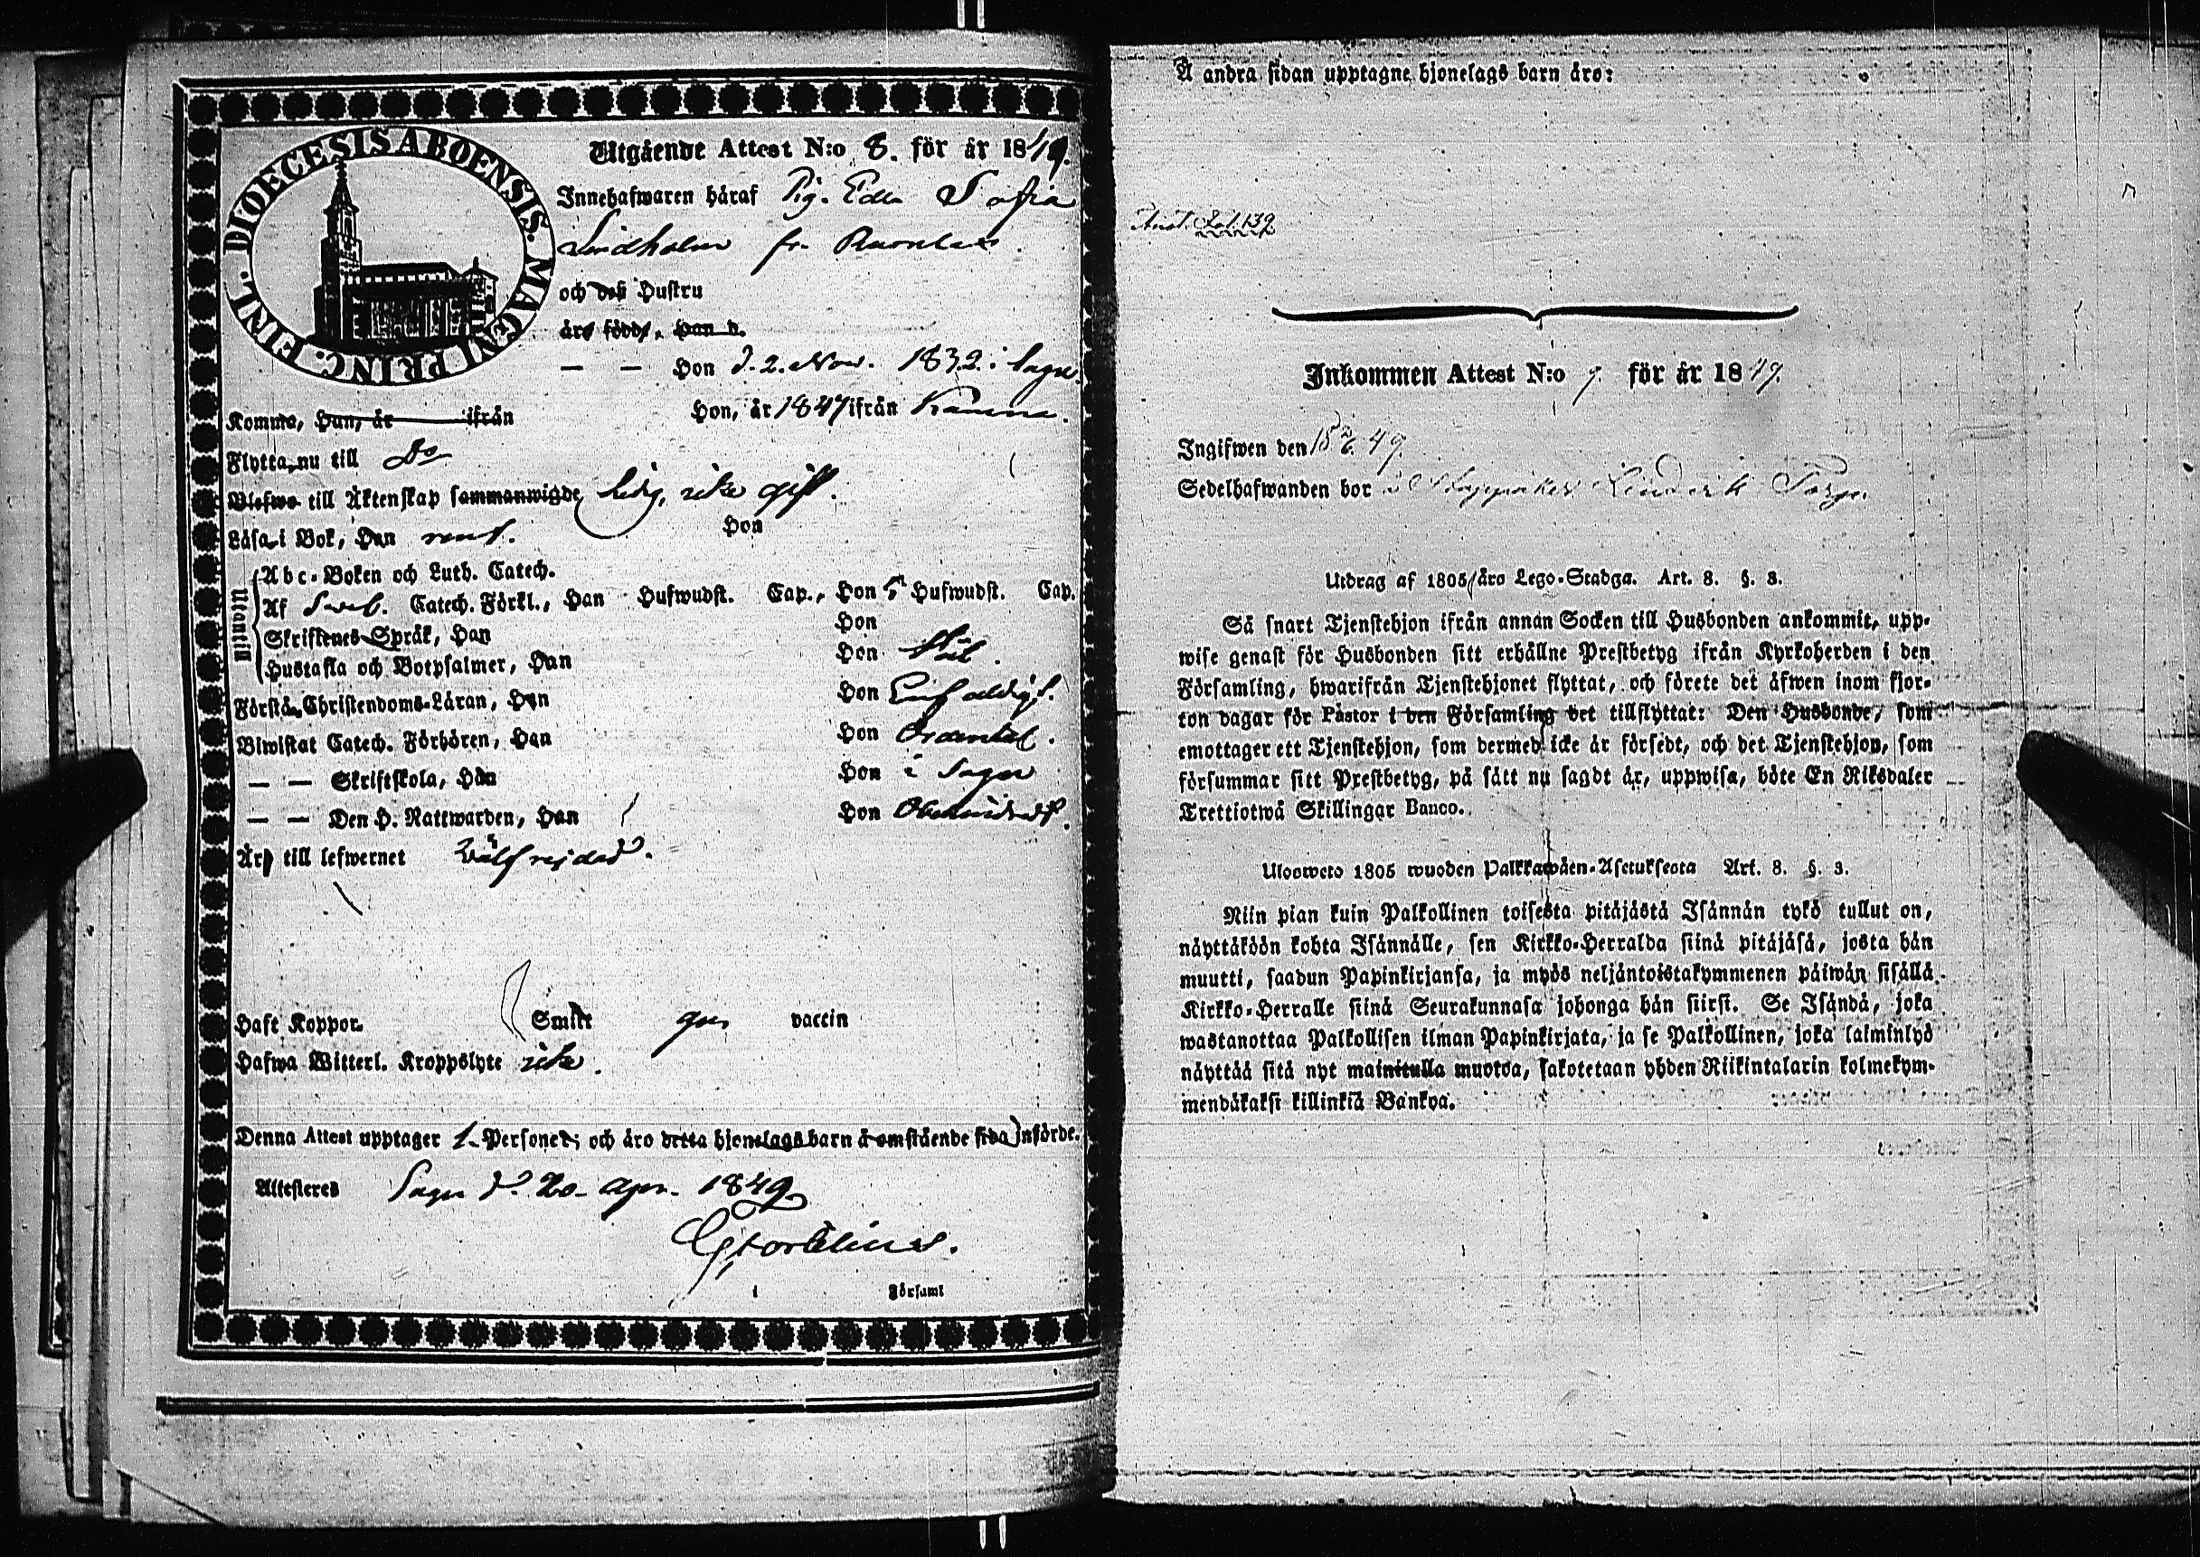 DIOECESIS ABOENSIS. MAGNI PRINC. FINL.
Utgående Attest N:o 8. för år 1849.
Innehafwaren håraf Pig. Edla Sofia
Lindholm fr.
och deß Hustru
åro födde, Han d.
— — Hon d. 2. Nov. 1832 i Sagu.
Komme, Han, år ifrån Hon, år 1847 ifrån
Flytta nu till Do
Blefwo till Äktenskap sammanwigde ledig, icke gift.
Låsa i Bok, Han rent. Hon
Utantill
Abc-Boken och Luth. Catech.
Af Sveb. Catech. Förkl., Han Hufwudst. Cap., Hon 5 Hufwudst. Cap.
Skriftenes Språk, Han Hon
Hustafla och Botpsalmer, Han Hon
Förstå Christendoms-Läran, Han Hon
Biwistat Catech. Förhören, Han Hon Ordentel.
— — Skriftskola, Han Hon i Sagu
— — Den H. Nattwarden, Han Hon Obehindradt.
Äro till lefwernet Välfrejdad.
Haft Koppor. Smitt gm vaccin
Hafwa Witterl. Kroppslyte icke.
Denna Attest upptager 1 Personer; och äro detta hjonelags barn å omstående sida införde.
Attesteres Sagu d. 20 Apr. 1849
i Församl
Å andra sidan upptagne hjonelags barn åro:
Inkommen Attest N:o 9. för år 1849.
Ingifwen den 49.
Sedelhafwanden bor
Utdrag af 1805 åro Lego-Stadga. Art. 8. §. 3.
Så snart Tjenstehjon ifrån annan Socken till Husbonden ankommit, upp-
wise genast för Husbonden sitt erhållne Prestbetyg ifrån Kyrkoherden i den
Församling, hwarifrån Tjenstehjonet flyttat, och förete det åfwen inom fjor-
ton dagar för Pastor i den Församling det tillflyttat: Den Husbonde, som
emottager ett Tjenstehjon, som dermed icke är försedt, och det Tjenstehjon, som
försummar sitt Prestbetyg, på sätt nu sagdt är, uppwisa, böte En Riksdaler
Trettiotwå Skillingar Banco.
Ulosweto 1805 wuoden Palkkawåen-Asetuksesta Art. 8. §. 3.
Niin pian kuin Palkollinen toisesta pitåjåstå Isånnån tykö tullut on,
nåyttåköön kohta Isånnålle, sen Kirkko-Herralda siinå pitåjåså, josta hån
muutti, saadun Papinkirjansa, ja myös neljåntoistakymmenen påiwån sisållå
Kirkko-Herralle siinå Seurakunnasa johonga hån siirsi. Se Isåndå, joka
wastanottaa Palkollisen ilman Papinkirjata, ja se Palkollinen, joka laiminlyö
nåyttåå sitå nyt mainitulla muotoa, sakotetaan yhden Riikintalarin kolmekym-
mendåkaksi killinkiå Bankoa.